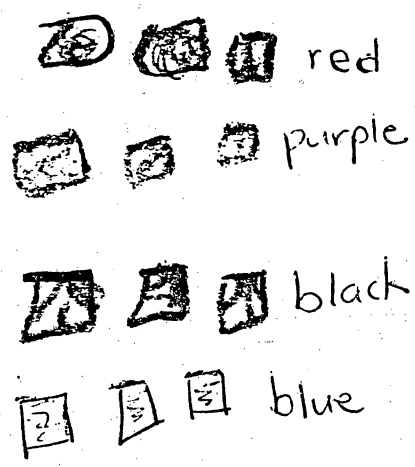 red
purple
black
blue